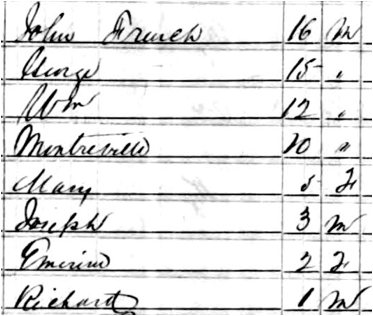 John French 16 m
George 15 "
Wm 12 "
Montreville 10 "
Mary 5 F
Joseph 3 m
Emerine 2 F
Richard 1 m